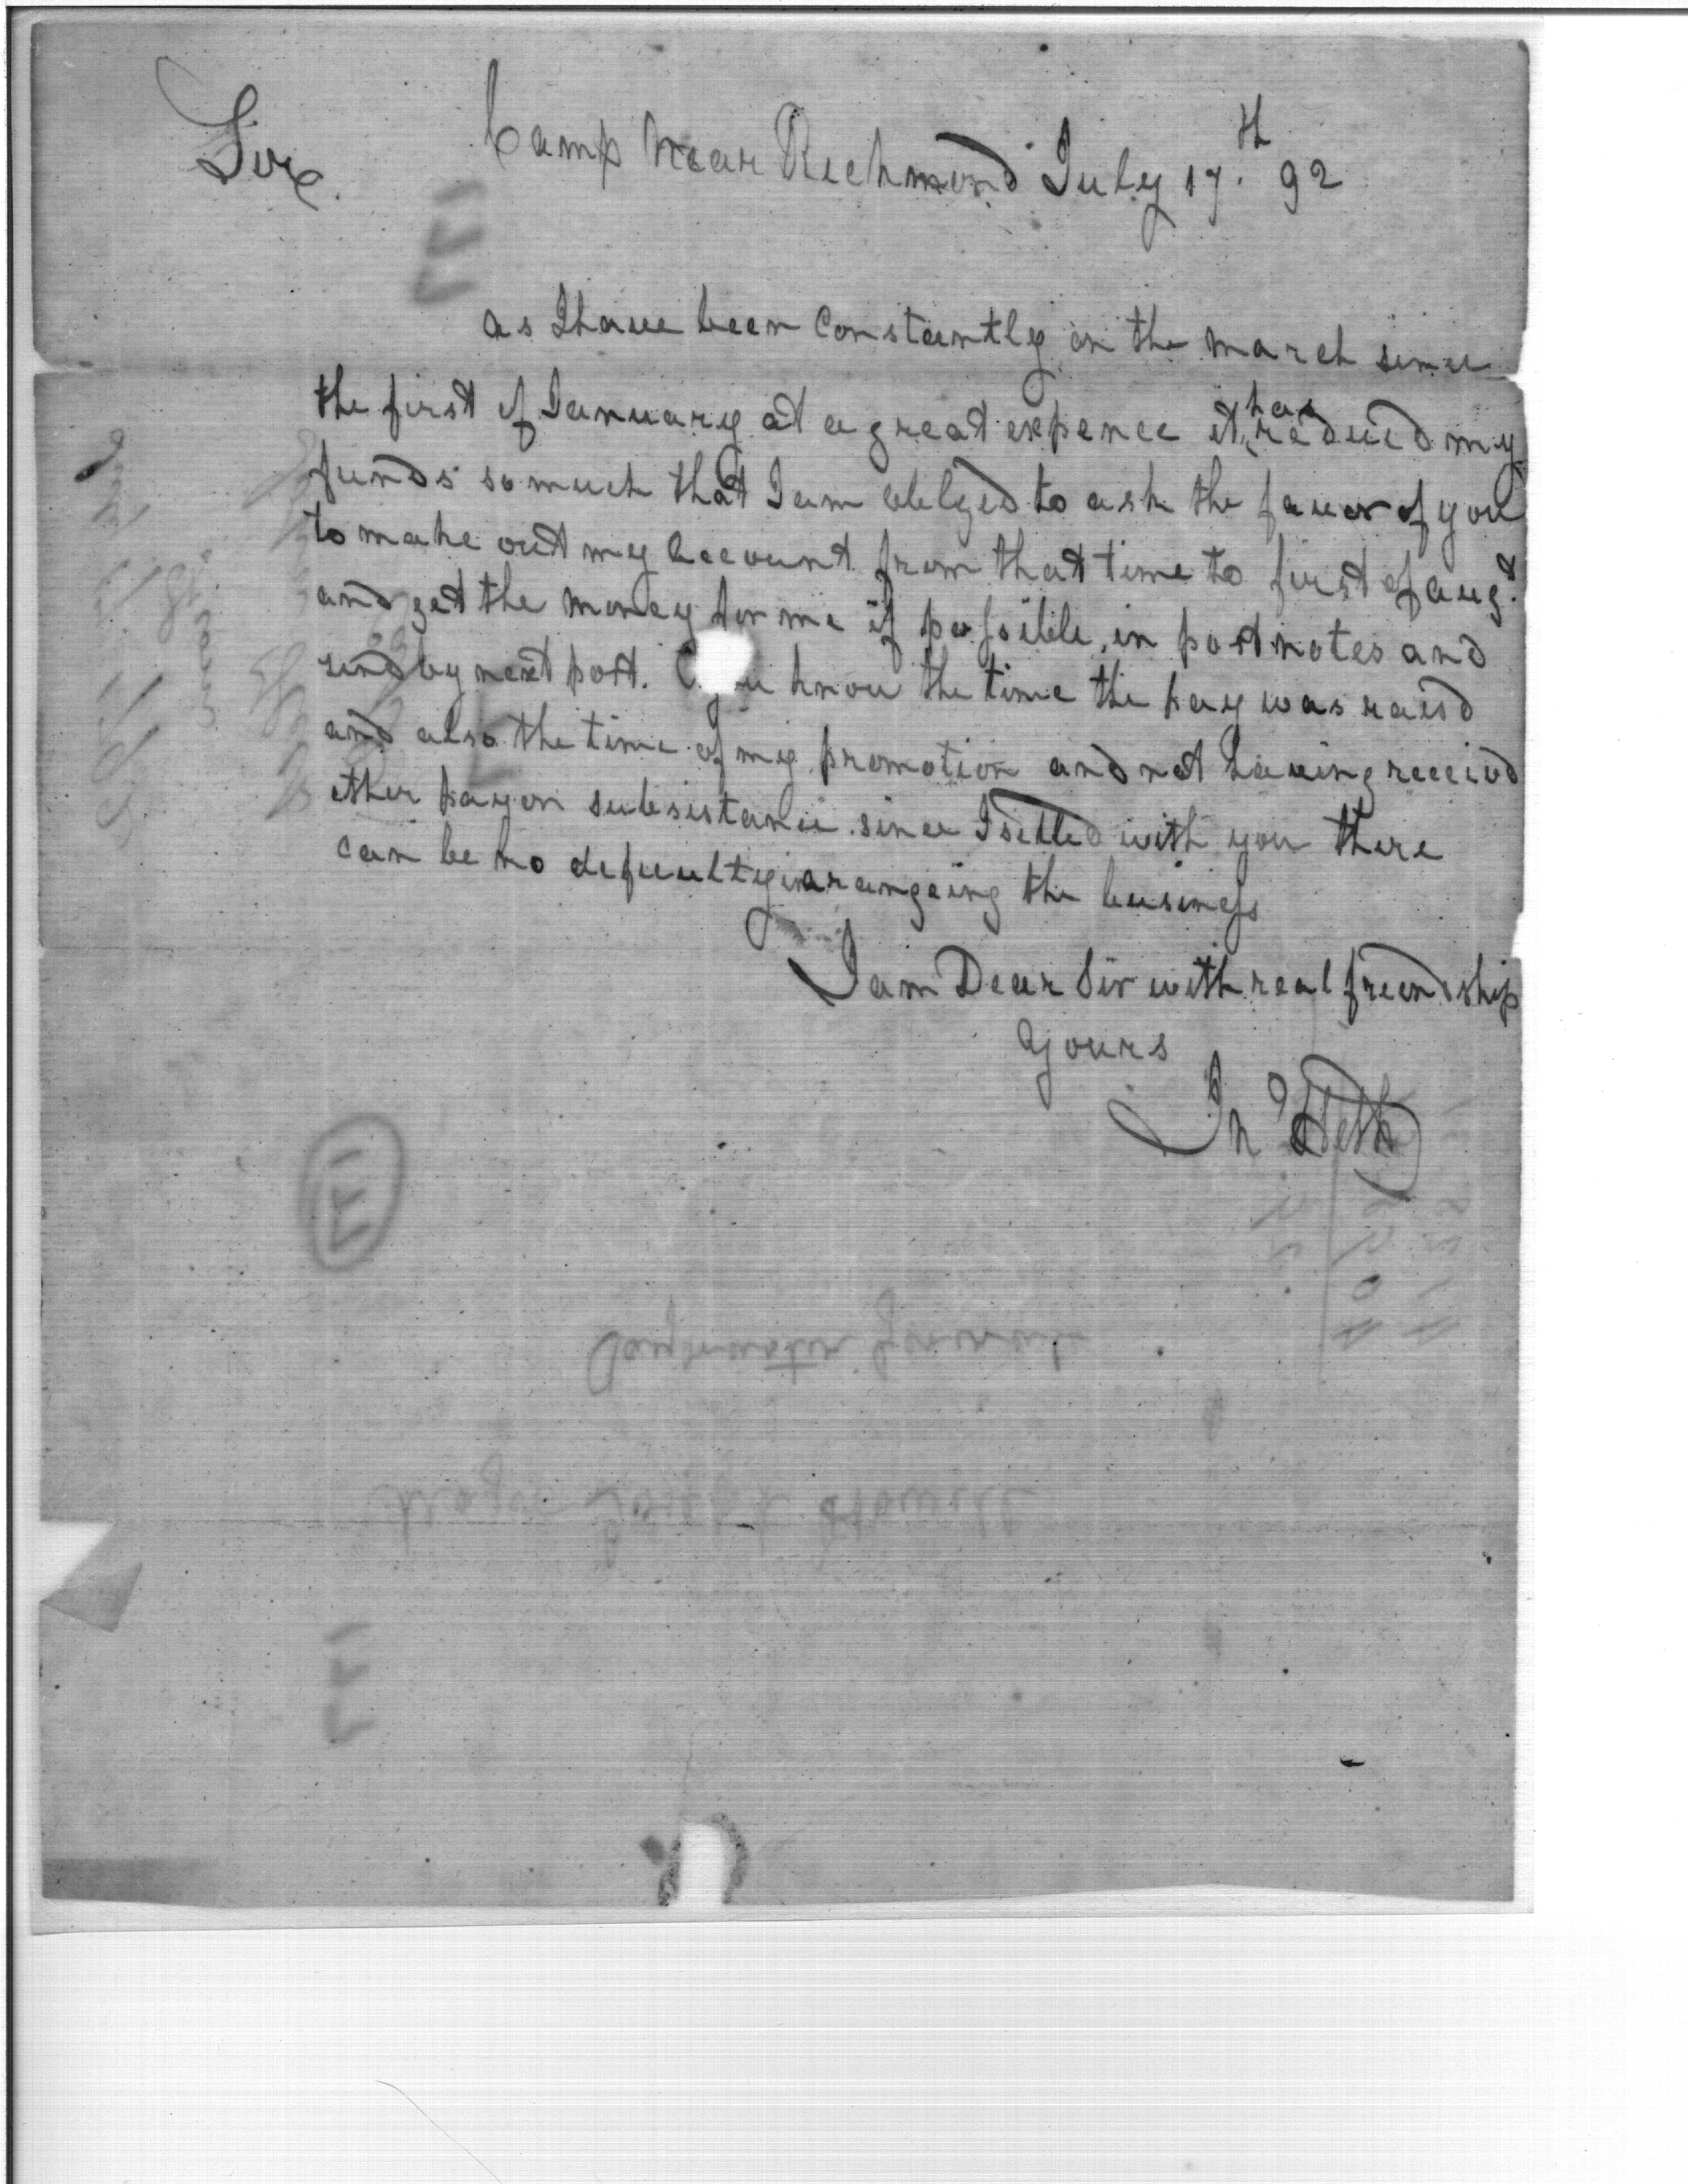 Camp Near Richmond July 17.th 92
Sir.
as I have been Constantly on the march since
the first of January at a great expence it has reducd my
funds so much that I am oblged to ask the favor of you
to make out my account from that time to first of augt.
and get the money for me if possible, in post notes and
send by next post. know the time the pay was raisd
and also the time of my promotion and not having receivd
ether pay or subsistance since I setled with you there
can be no dificulty in arangeing the business
I am Dear Sir with real freendship
yours
Jn Heth
E